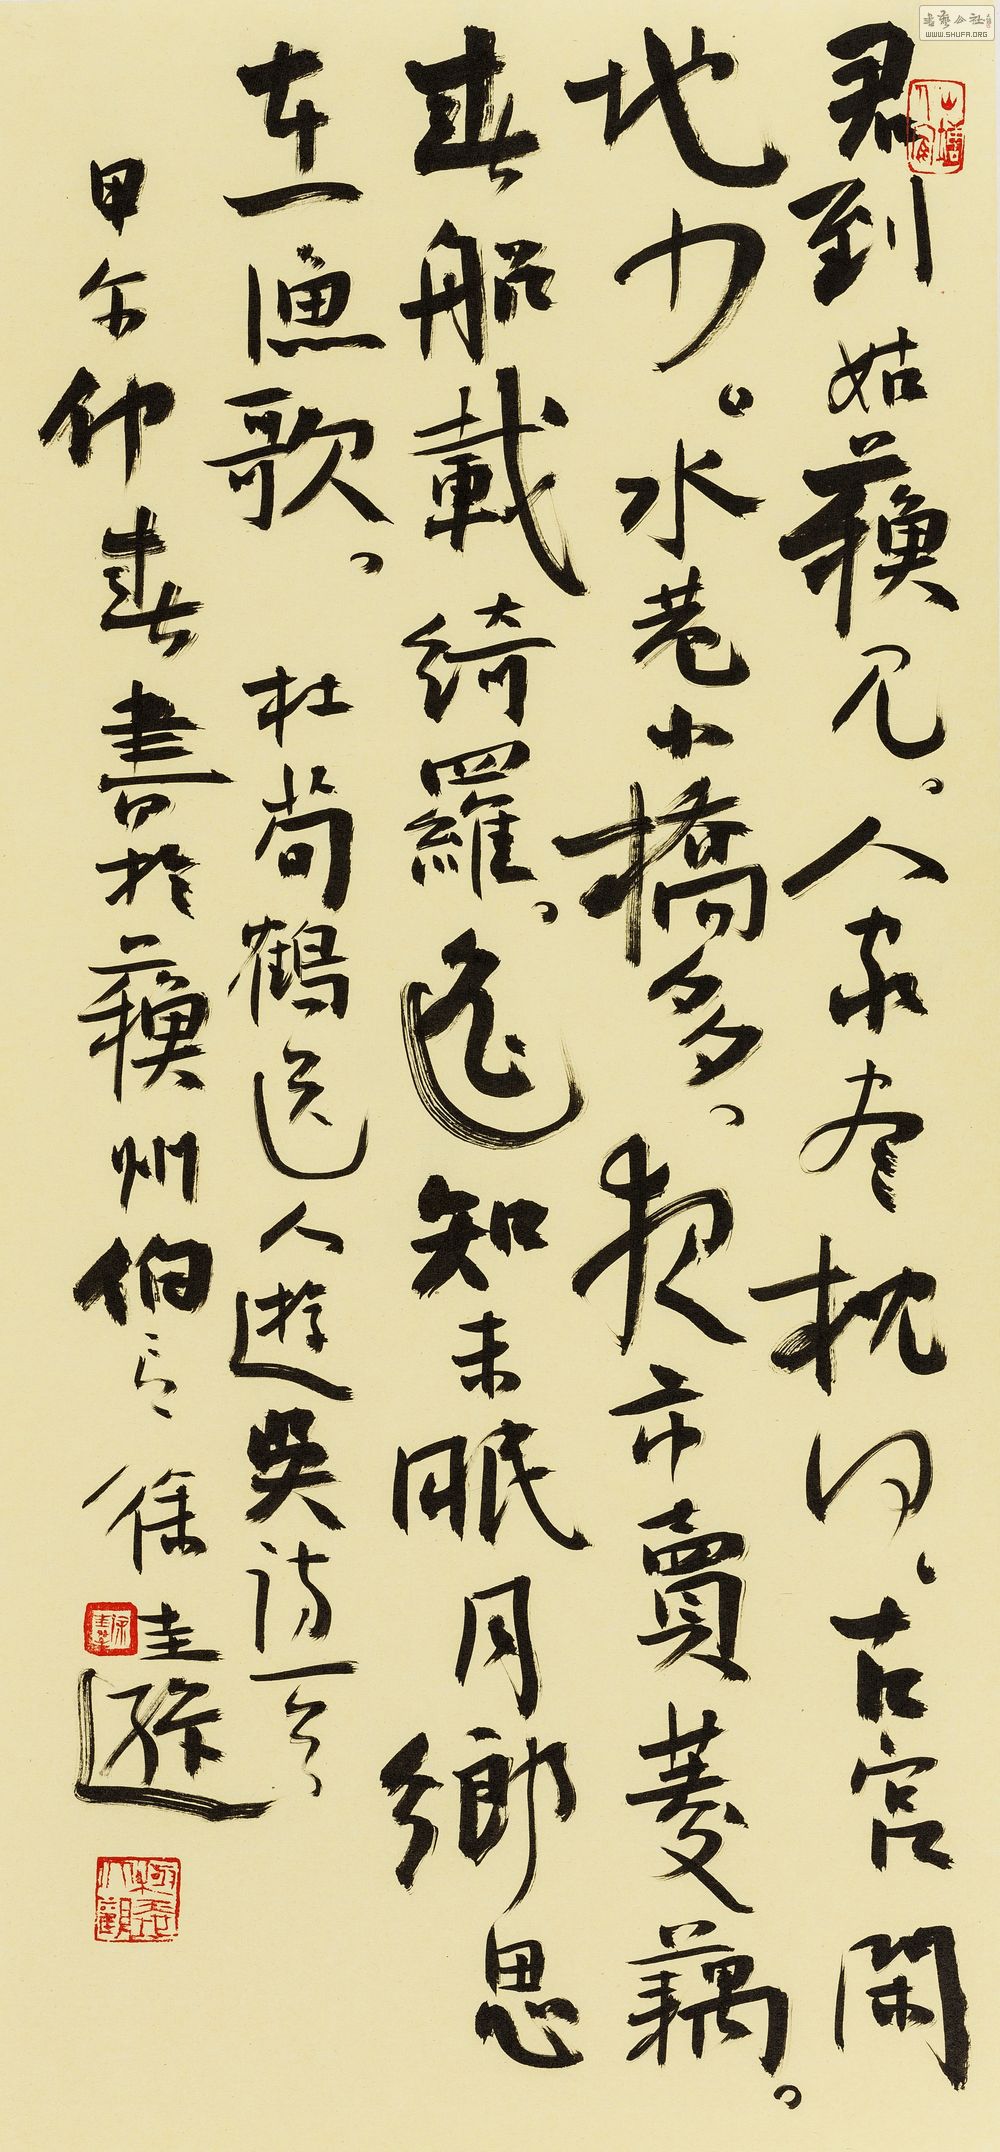 君到姑蘓見。人家盡枕河、古宮閑
地少。水巷小橋多、夜市賣菱藕。
春船載綺羅。遙知未眠月鄉思
在一漁歌。杜荀鶴送人遊吳詩一首
甲午仲春書於蘓州伯言徐圭遜
書藝公社
WWW.SHUFA.ORG